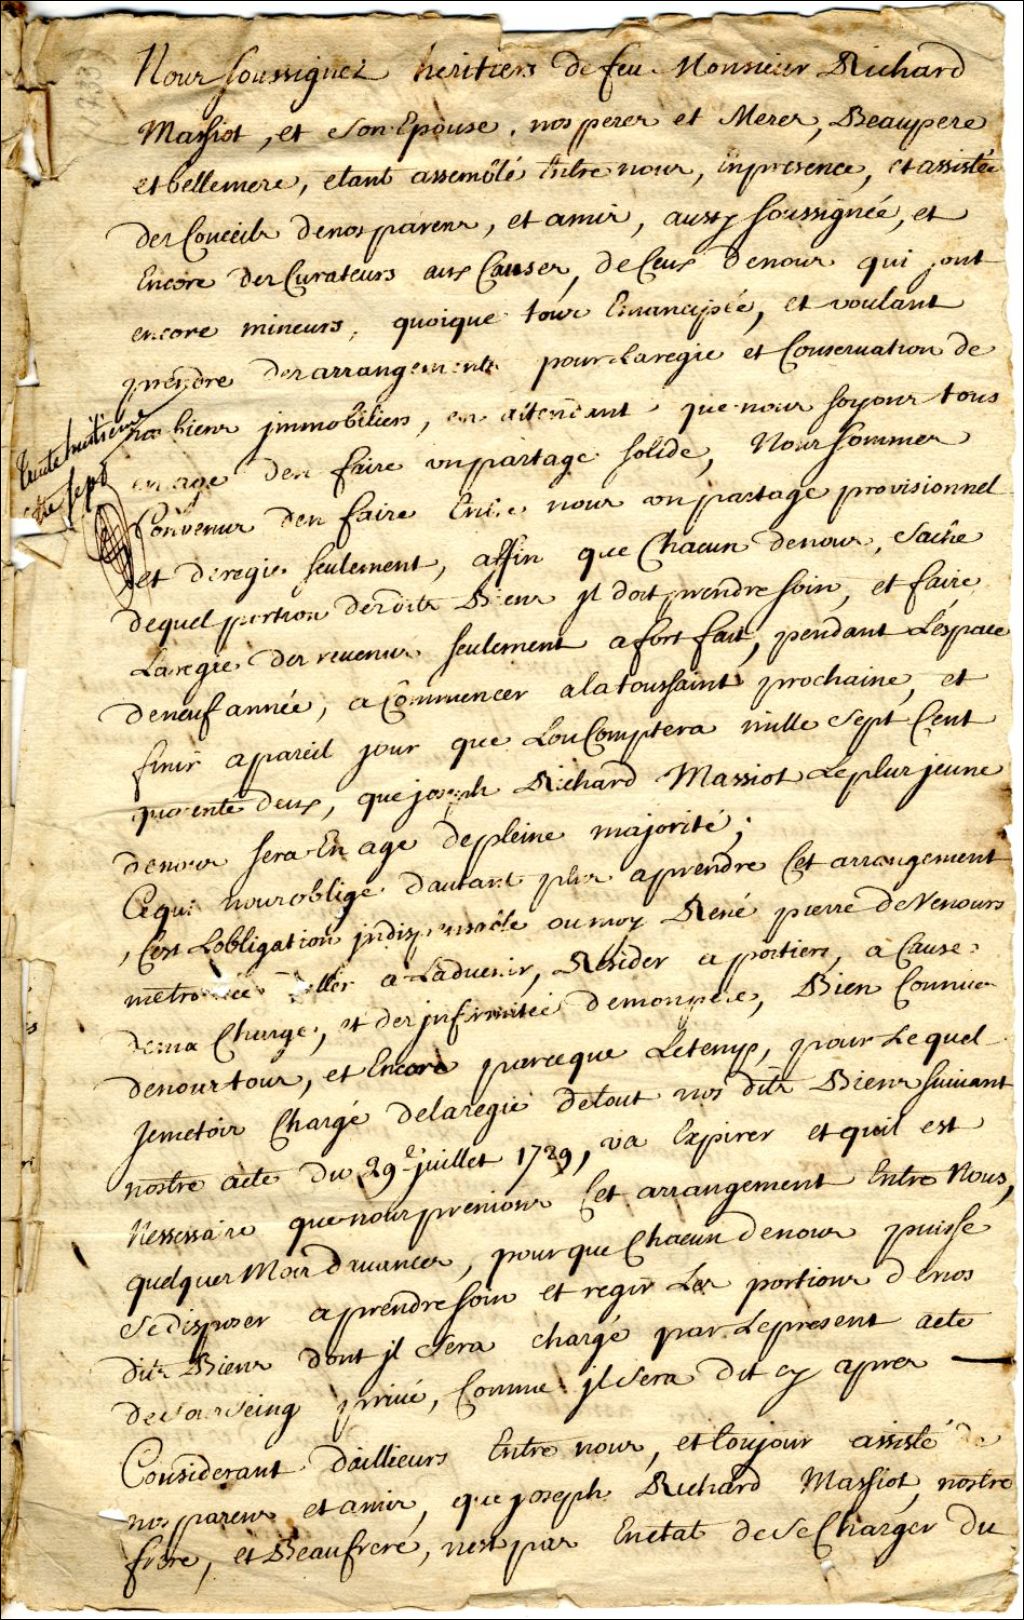 1733
Nous soussignez heritiers de feu Monsieur Richard
Massiot, et son Epouse, nos peres et Meres, Beaupere
et bellemere, etant assemblé Entre nous, en presence, et assistée
des Conceils de nos parens, et amis, aussy soussignée, et
Encore des Curateurs aux Causes, de Ceux de nous qui sont
encore mineurs, quoique tous Emancipée, et voulant
prendre des arrangements pour la regie et Conservation de
nos biens jmmobiliers, en attendant que nous soyons tous
en age den faire un partage solide, Nous sommes
Convenus den faire Entre nous un partage provisionnel
et de regie seulement, affin que Chacun de nous, sache
de quel portion desdits Biens jl doit prendre soin, et faire
La regie des revenus seulement a forfait, pendant Lespace
de neuf année, a Commencer a la toussaint prochaine, et
finir a pareil jour que Lon Comptera mille sept Cent
quarente deux, que joseph Richard Massiot Le plus jeune
de nous sera En age de pleine majorité;
Ce qui nous oblige dautant plus a prendre Cet arrangement
, Cest Lobligation jndispensable ou moy René pierre De Venours
me trouvée daller a Ladvenir, Resider a poitiers, a Cause
de ma Charge, et des jnfirmitée de mon pere, Bien Connue
de nous tous, et Encore parce que Le temps, pour Le quel
je metois Chargé de la regie de tout nos dits Biens suivant
nostre acte du 29e juillet 1729, va Expirer et quil est
Nessessaire que nous prenions Cet arrangement Entre Nous,
quelques Mois davance, pour que Chacun de nous puisse
se disposer a prendre soin et regir Les portions de nos
dits Biens dont jl sera chargé par Le present acte
de sous seing privé, Comme jl sera dit cy apres
Considerant dailleurs Entre nous, et toujour assisté de
nos parens et amis, que joseph Richard Massiot, nostre
frere, et Beaufrere, nest pas En etat de se Charger du
trente huitieme